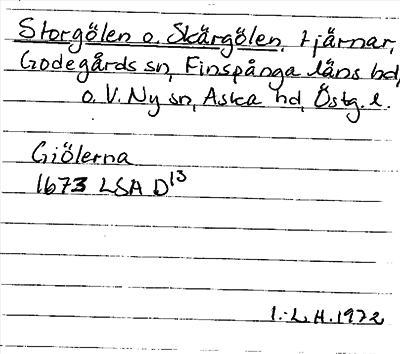 Storgölen o. Skärgölen, tjärnar,
Godegårds sn, Finspånga läns hd,
o. V. Ny sn, Aska hd, Östg. l.
Giölerna
1673 LSA D13
I.-L.H. 1972